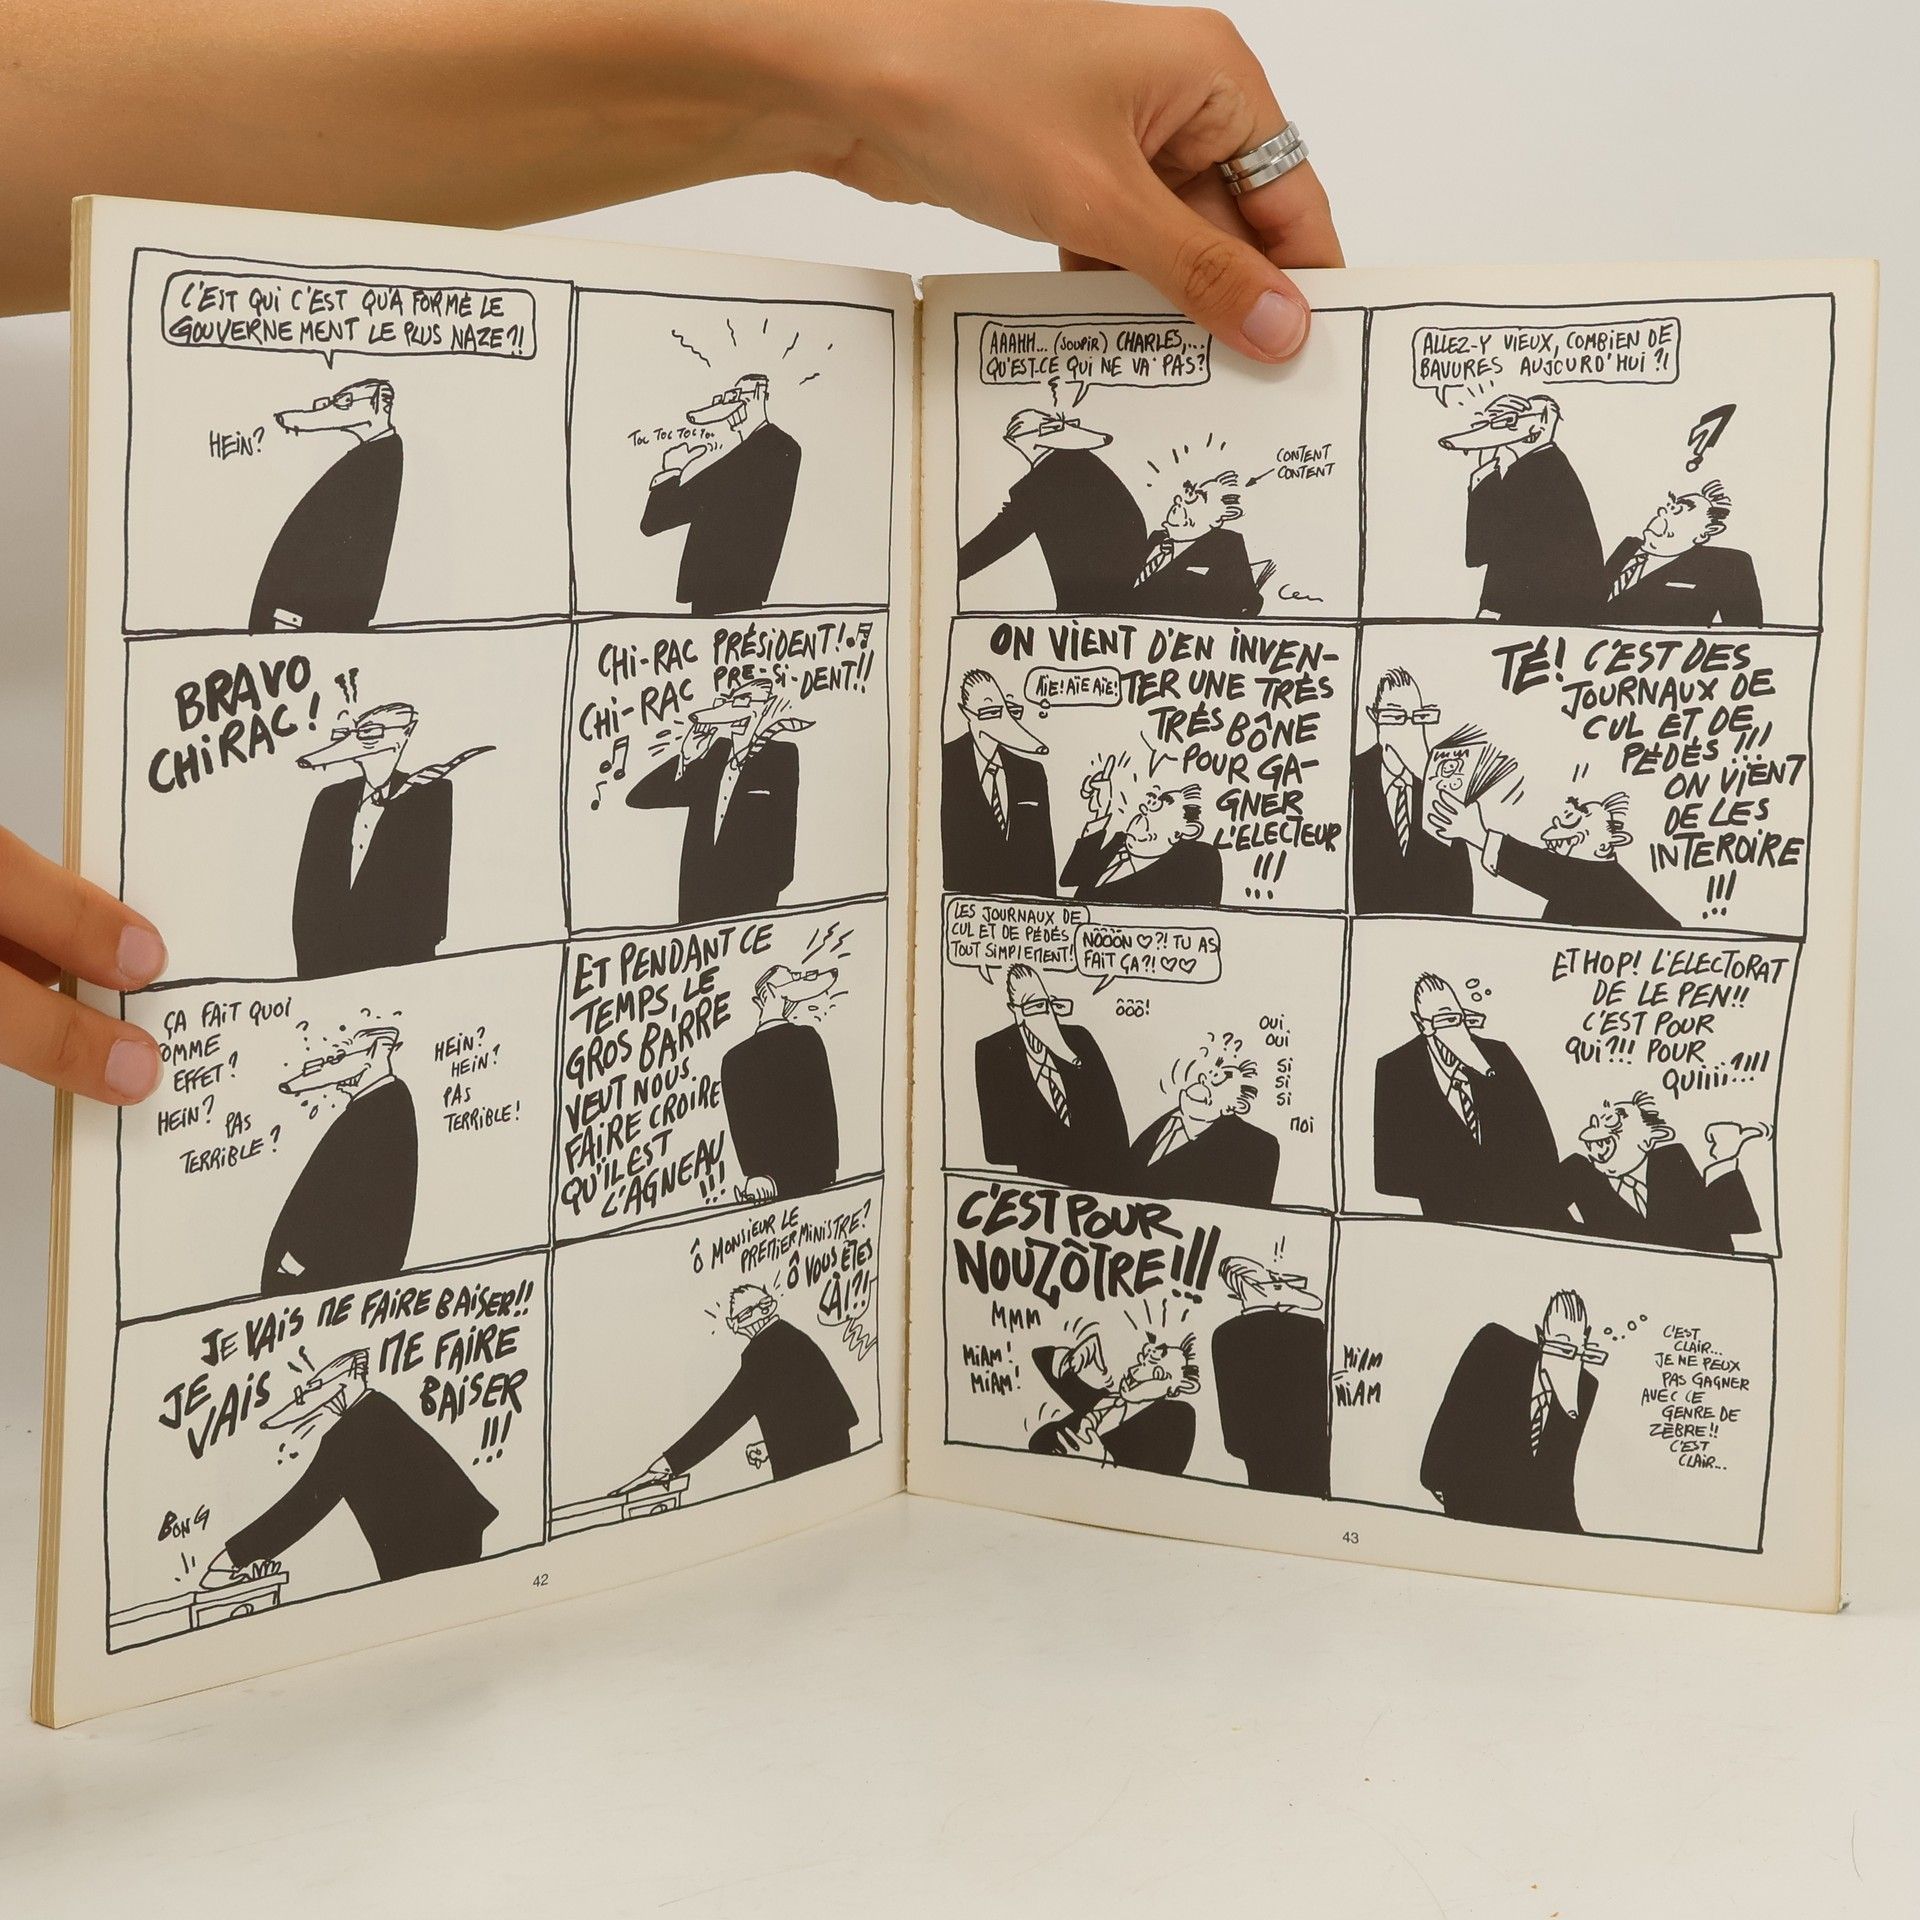 C'EST QUI C'EST QU'A FORMÉ LE
GOUVERNEMENT LE PLUS NAZE?!
HEIN?
TOC TOC TOC TOC
BRAVO
CHIRAC!
CHI-RAC PRÉSIDENT!
CHI-RAC PRE-SI-DENT!!
ÇA FAIT QUOI
OMME
EFFET?
HEIN? PAS
TERRIBLE?
HEIN?
HEIN?
PAS
TERRIBLE!
ET PENDANT CE
TEMPS, LE
GROS BARRE
VEUT NOUS
FAIRE CROIRE
QU'IL EST
L'AGNEAU
!!!
JE VAIS ME FAIRE BAISER!!
JE
VAIS
ME FAIRE
BAISER
!!!
BONG
Ô MONSIEUR LE
PREMIER MINISTRE?
Ô VOUS ÊTES
LÀ!?!
42
AAAHH... (SOUPIR) CHARLES,...
QU'EST-CE QUI NE VA PAS?
CONTENT
CONTENT
ALLEZ-Y VIEUX, COMBIEN DE
BAVURES AUJOURD'HUI?!
?
ON VIENT D'EN INVEN-
TER UNE TRÈS
TRÈS BÔNE
POUR GA-
GNER
L'ELECTEUR
!!!
AÏE! AÏE AÏE!
TÉ! C'EST DES
JOURNAUX DE
CUL ET DE
PÉDÉS!!!
ON VIENT
DE LES
INTERDIRE
!!!
LES JOURNAUX DE
CUL ET DE PÉDÉS
TOUT SIMPLEMENT!
NÔÔÔN ♡?! TU AS
FAIT ÇA?! ♡♡
ÔÔÔ!
???
OUI
OUI
SI
SI
SI
MOI
ET HOP! L'ELECTORAT
DE LE PEN!!
C'EST POUR
QUI?!! POUR
QUIIII...?!!!
C'EST POUR
NOUZÔTRE!!!
!!
MMM
MIAM!
MIAM!
MIAM
MIAM
C'EST
CLAIR...
JE NE PEUX
PAS GAGNER
AVEC CE
GENRE DE
ZÈBRE!!
C'EST
CLAIR...
43